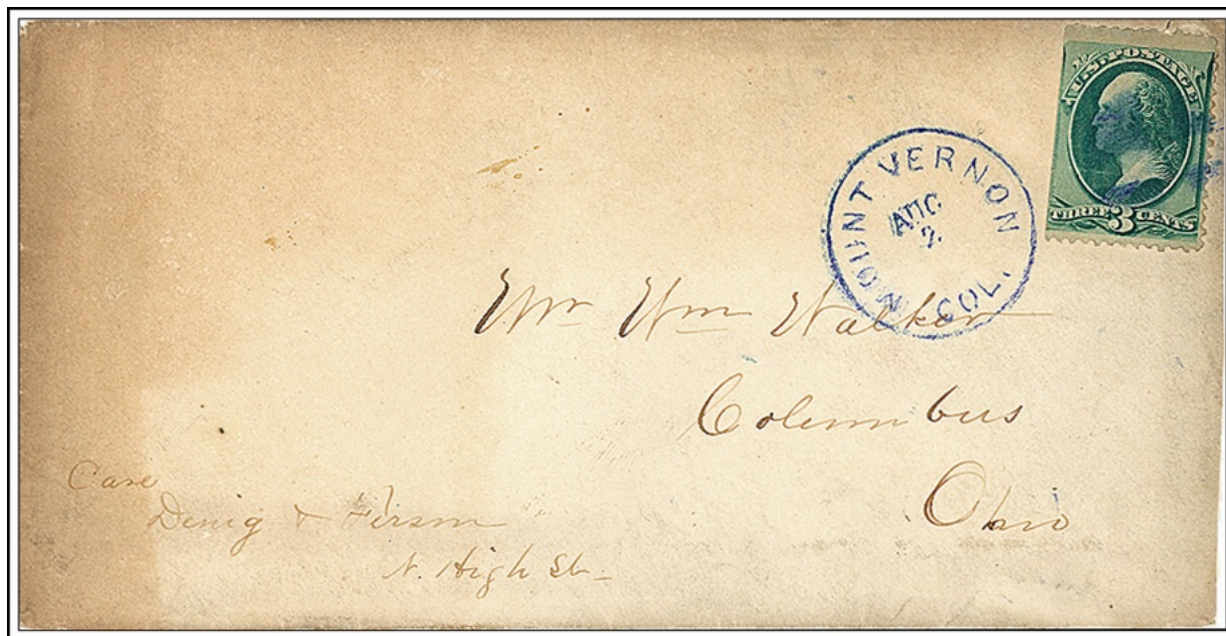 U.S. POSTAGE
THREE 3 CENTS
MOUNT VERNON
COL.
AUG
2
Mr Wm Walker
Columbus
Ohio
Care
Denig & Ferson
N. High St